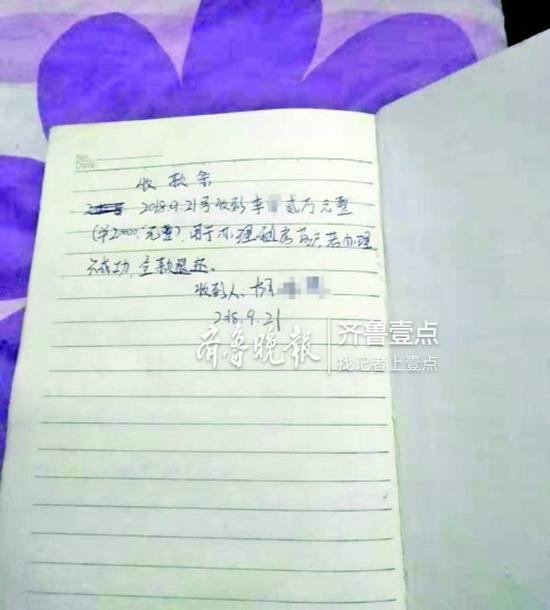 No.
Date.
收款条
2018.9.21号收到李 贰万元整
(¥20000元整)用于办理租房落户,若办理
不成功,全款退还。
收到人:
2018.9.21
齐鲁晚报
齐鲁壹点
找记者上壹点